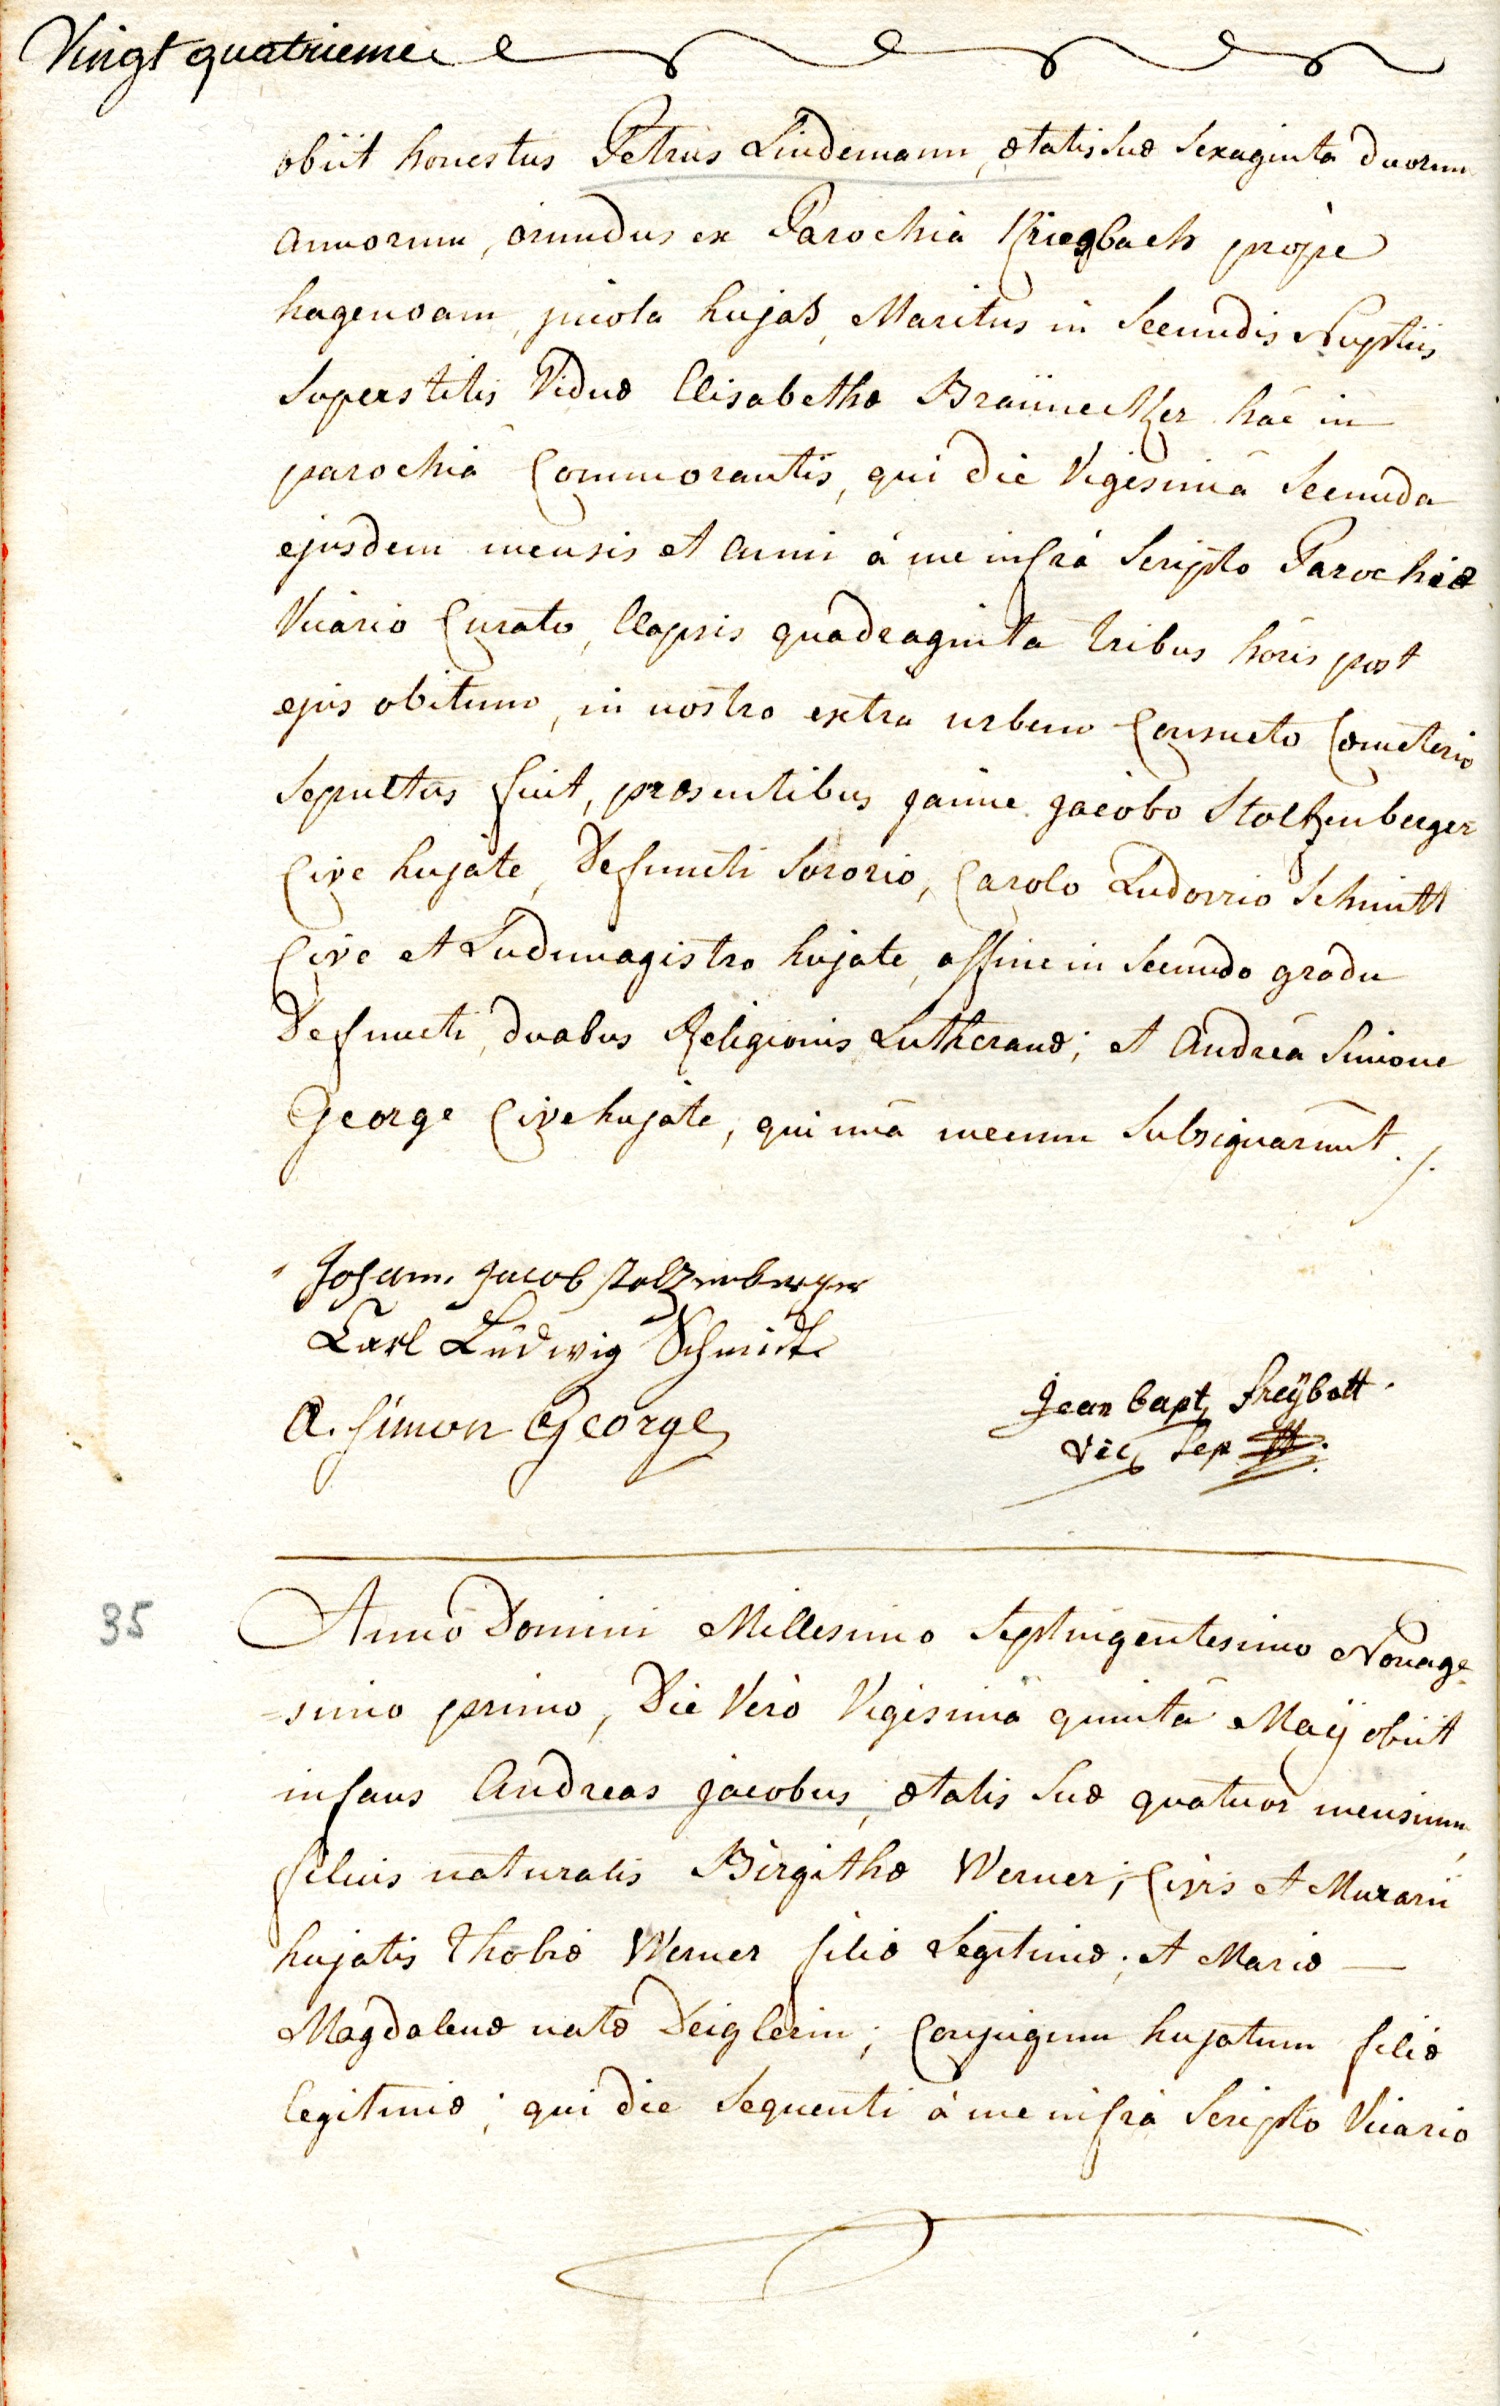 Vingt quatrieme
obiit honestus Petrus Lindemann, ætatis suæ sexaginta duorum
annorum, oriundus ex Parochiâ Kriegbach prope
hagenoam, incola hujas, Maritus in secundis Nuptiis
superstitis Viduæ Elisabethæ Braünecker hâc in
parochiâ Commorantis, qui die Vigesimâ secunda
ejusdem mensis et anni à me infrà scripto Parochiæ
Vicario Curato, Elapsis quadraginta tribus horis post
ejus obitum, in nostro extra urbem Consueto Cœmeterio
sepultus fuit, præsentibus joanne jacobo Stoltzenberger
Cive hujate, Defuncti sororio, Carolo Ludovico Schmitt
Cive et Ludimagistro hujate, affine in secundo gradu
Defuncti, duabus Religionis Lutheranæ; et Andreâ Simone
George Cive hujate, qui unâ mecum subsignarunt ./.
Johann Jacob stoltzenberger
Carl Ludwig Schmidt
A. simon George
jean bapt freÿbott
vic
35
Anno Domini Millesimo septingentesimo Nonage-
-simo primo, Die Verò Vigesimâ quintâ Maÿ obiit
infans Andreas jacobus, ætatis suæ quatuor mensium,
filius naturalis Birgithæ Werner, Civis et Murarii
hujatis Thobiæ Werner filiæ Legitimæ; et Mariæ —
Magdalenæ natæ Deiglerin; Conjugum hujatum filiæ
legitimæ; qui die sequenti à me infrà scripto Vicario